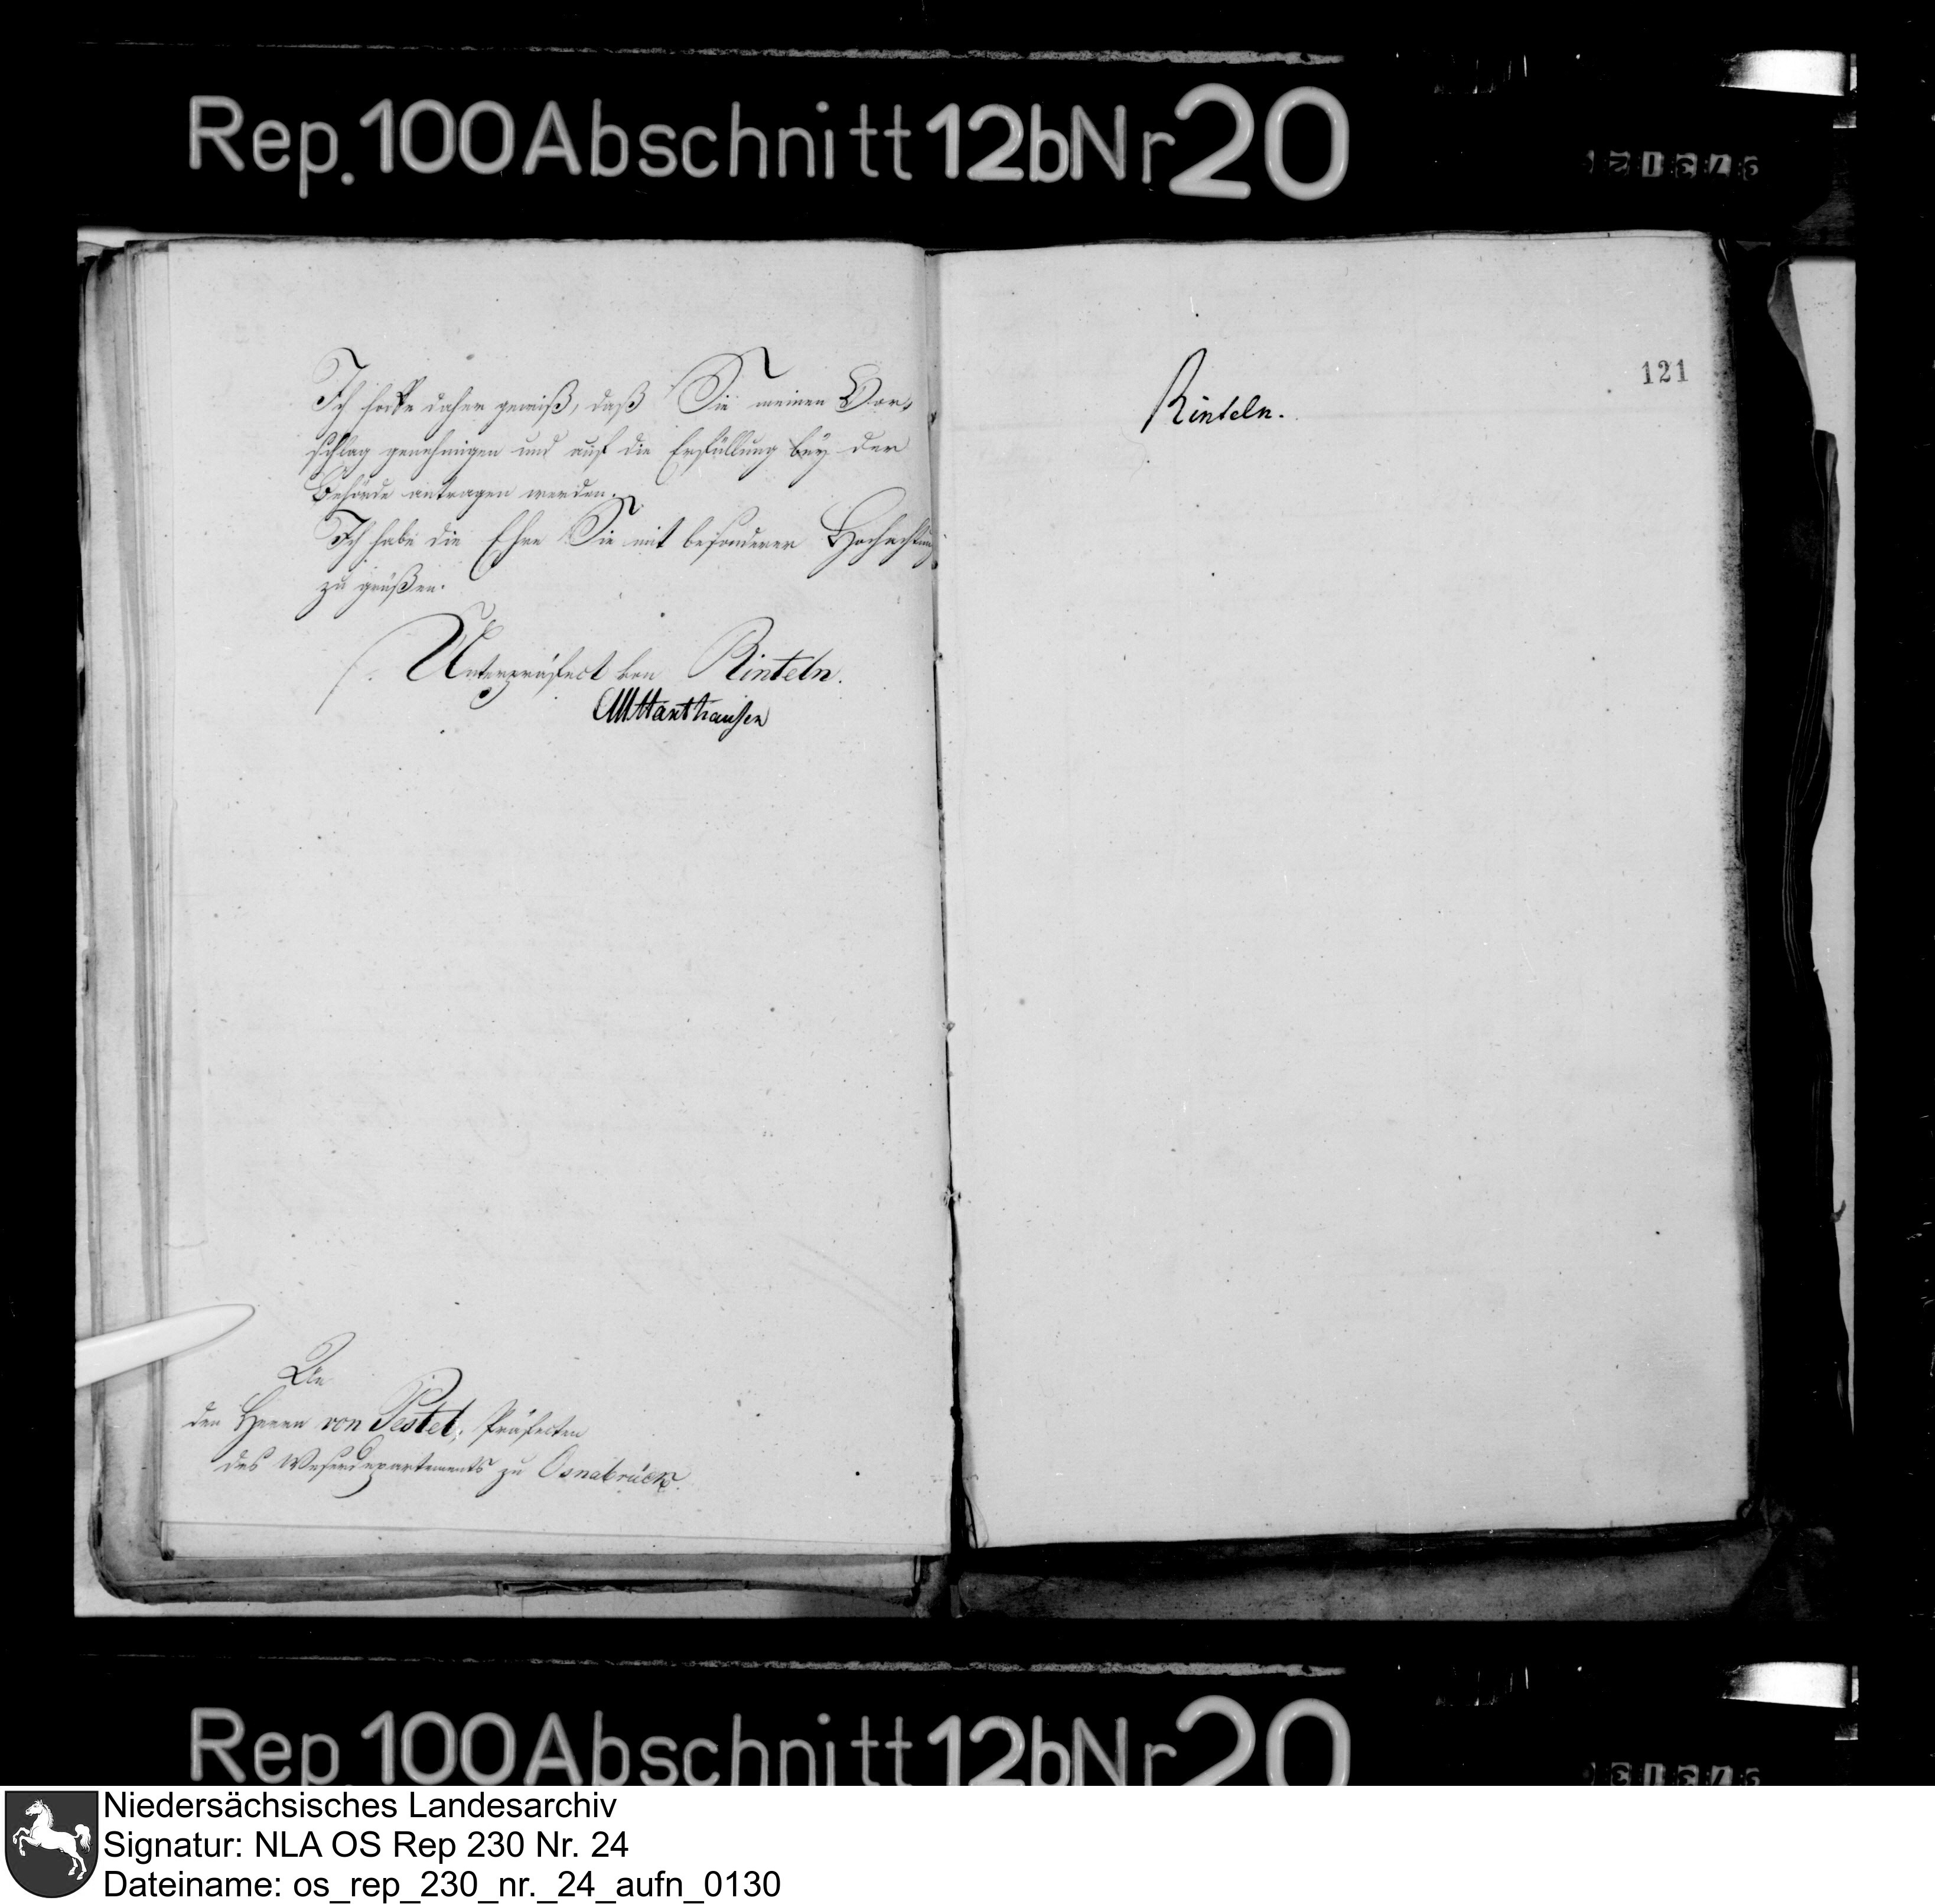 Rep. 100 Abschnitt 12b Nr 20
Ich hoffe daher gewiß, daß Sie meinen Vor-
schlag genehmigen und auf die Erfüllung bey der
Behörde antragen werden.
Ich habe die Ehre Sie mit besonderer Hochachtung
zu grüßen.
Unterpräfect von Rinteln.
An
den Herrn von Pestel, Präfecten
des Weserdepartements zu Osnabrück.
121
Rinteln.
Rep. 100 Abschnitt 12b Nr 20
Niedersächsisches Landesarchiv
Signatur: NLA OS Rep 230 Nr. 24
Dateiname: os_rep_230_nr._24_aufn_0130